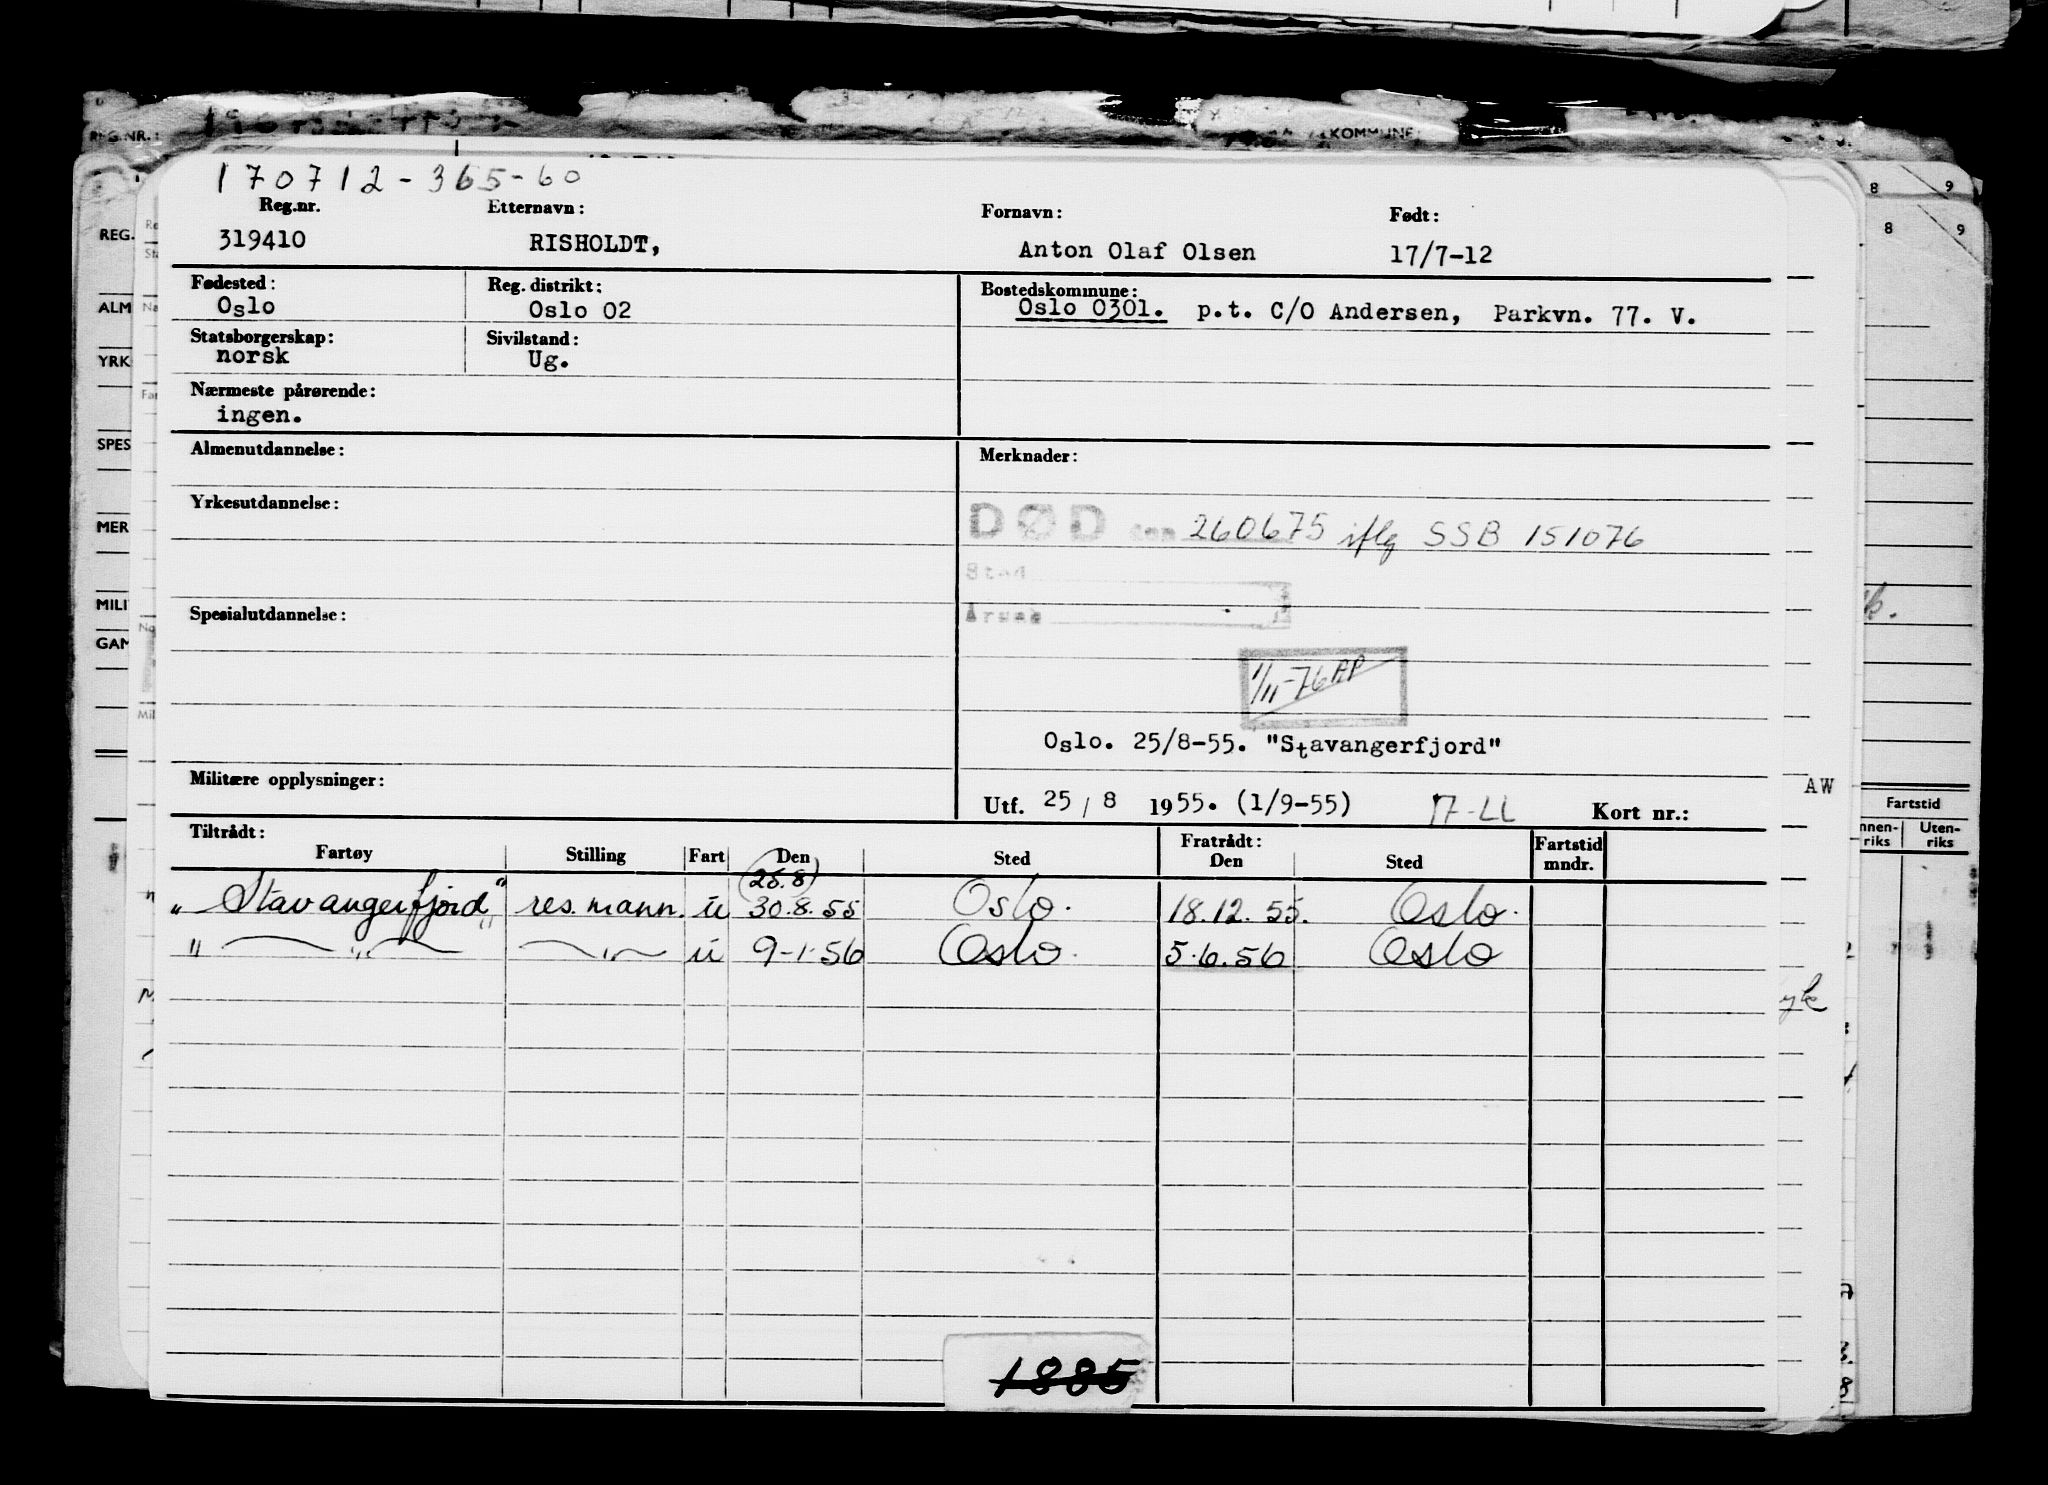 REG.NR.:
KOMMUNE
170712-365-60
Reg.nr. Etternavn: Fornavn: Født:
319410 RISHOLDT, Anton Olaf Olsen 17/7-12
Fødested: Reg. distrikt: Bostedskommune:
Oslo Oslo 02 Oslo 0301. p.t. C/O Andersen, Parkvn. 77. V.
Statsborgerskap: Sivilstand:
norsk Ug.
Nærmeste pårørende:
ingen.
Almenutdannelse: Merknader:
Yrkesutdannelse:
DØD den 260675 iflg SSB 151076
Sted
Årsak
Spesialutdannelse:
1/11-76 AP
Oslo. 25/8-55. "Stavangerfjord"
Militære opplysninger:
AW
Utf. 25/8 1955. (1/9-55) Kort nr.:
Tiltrådt: Fratrådt:
Fartøy Stilling Fart Den Sted Den Sted Fartstid mndr.
(25.8)
"Stavangerfjord" res. mann. u 30.8.55 Oslo. 18.12.55. Oslo.
" — " — — " — u 9-1-56 Oslo. 5.6.56 Oslo
1885
REG.
ALM
YRK
SPES
MER
MILI
GAM
8 9
8 9
Fartstid
nnen-riks Uten-riks